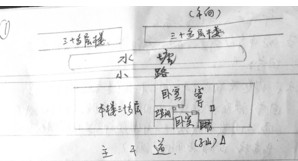 ①
(午向)
三十多层楼
三十多层楼
水塘
小路
本楼三十多层
卧室
客厅
卧室
主干道
(子山)